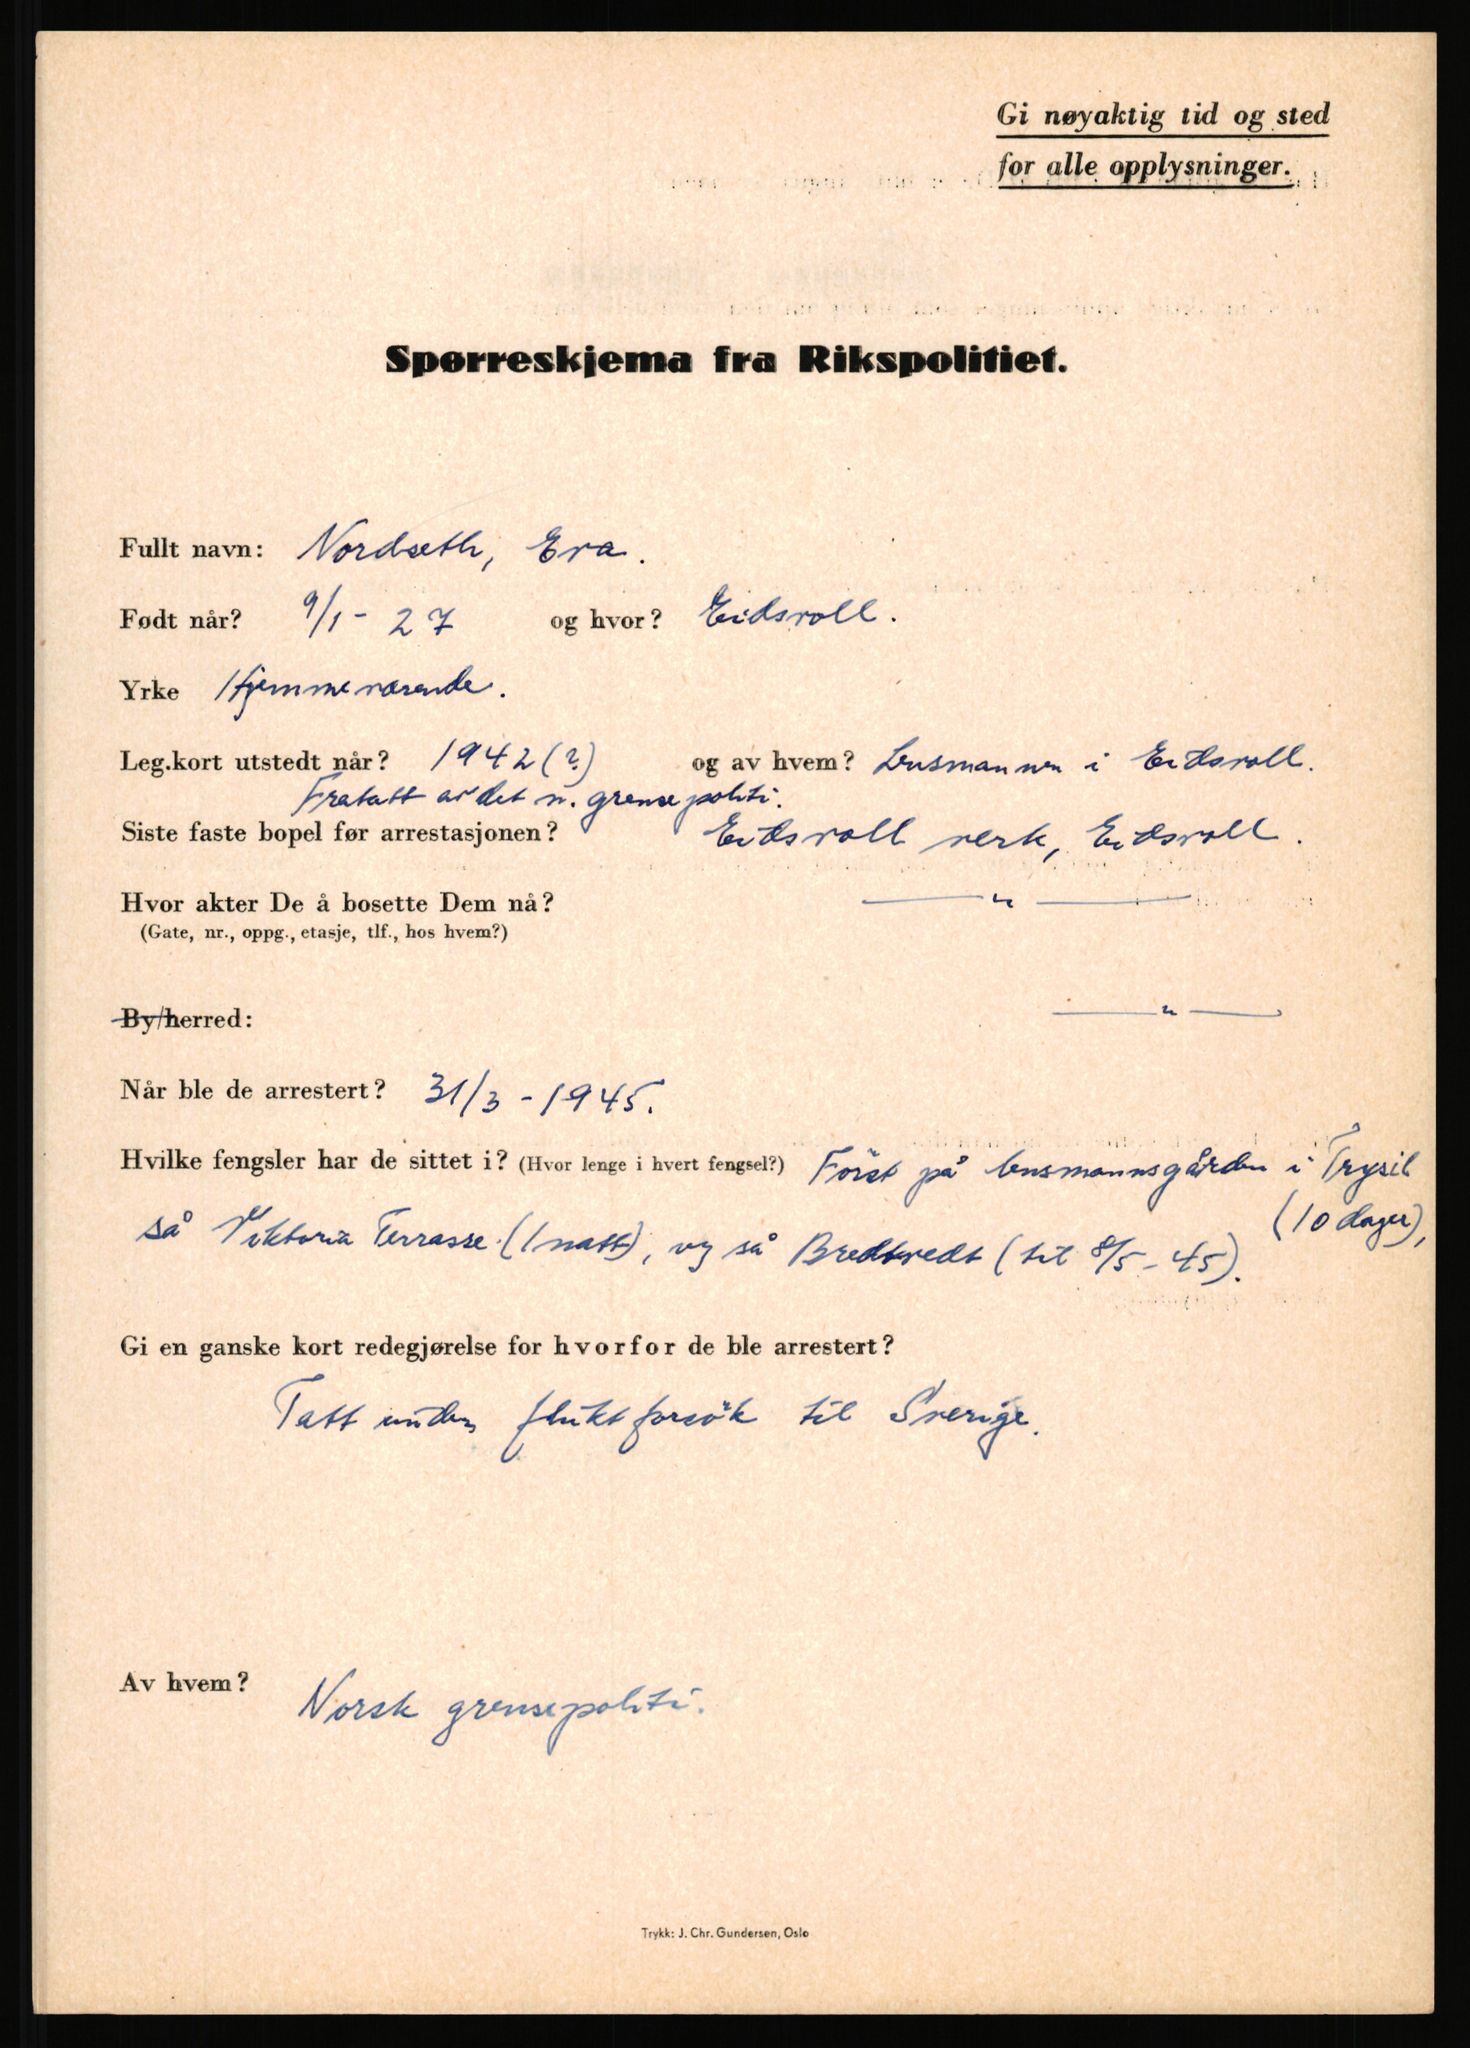 Gi nøyaktig tid og sted
for alle opplysninger.
Spørreskjema fra Rikspolitiet.
Fullt navn: Nordseth, Eva.
Født når? 9/1 - 27 og hvor? Eidsvoll.
Yrke Hjemmeværende.
Leg.kort utstedt når? 1942 (?) og av hvem? Lensmannen i Eidsvoll.
Fratatt av det n. grensepoliti.
Siste faste bopel før arrestasjonen? Eidsvoll verk, Eidsvoll.
Hvor akter De å bosette Dem nå? — " —
(Gate, nr., oppg., etasje, tlf., hos hvem?)
By/herred: — " —
Når ble de arrestert? 31/3 - 1945.
Hvilke fengsler har de sittet i? (Hvor lenge i hvert fengsel?) Först på lensmannsgården i Trysil
(10 dager),
så Viktoria Terrasse (1 natt), og så Bredtvedt (til 8/5 - 45).
Gi en ganske kort redegjørelse for hvorfor de ble arrestert?
Tatt under fluktforsök til Sverige.
Av hvem? Norsk grensepoliti.
Trykk: J. Chr. Gundersen, Oslo